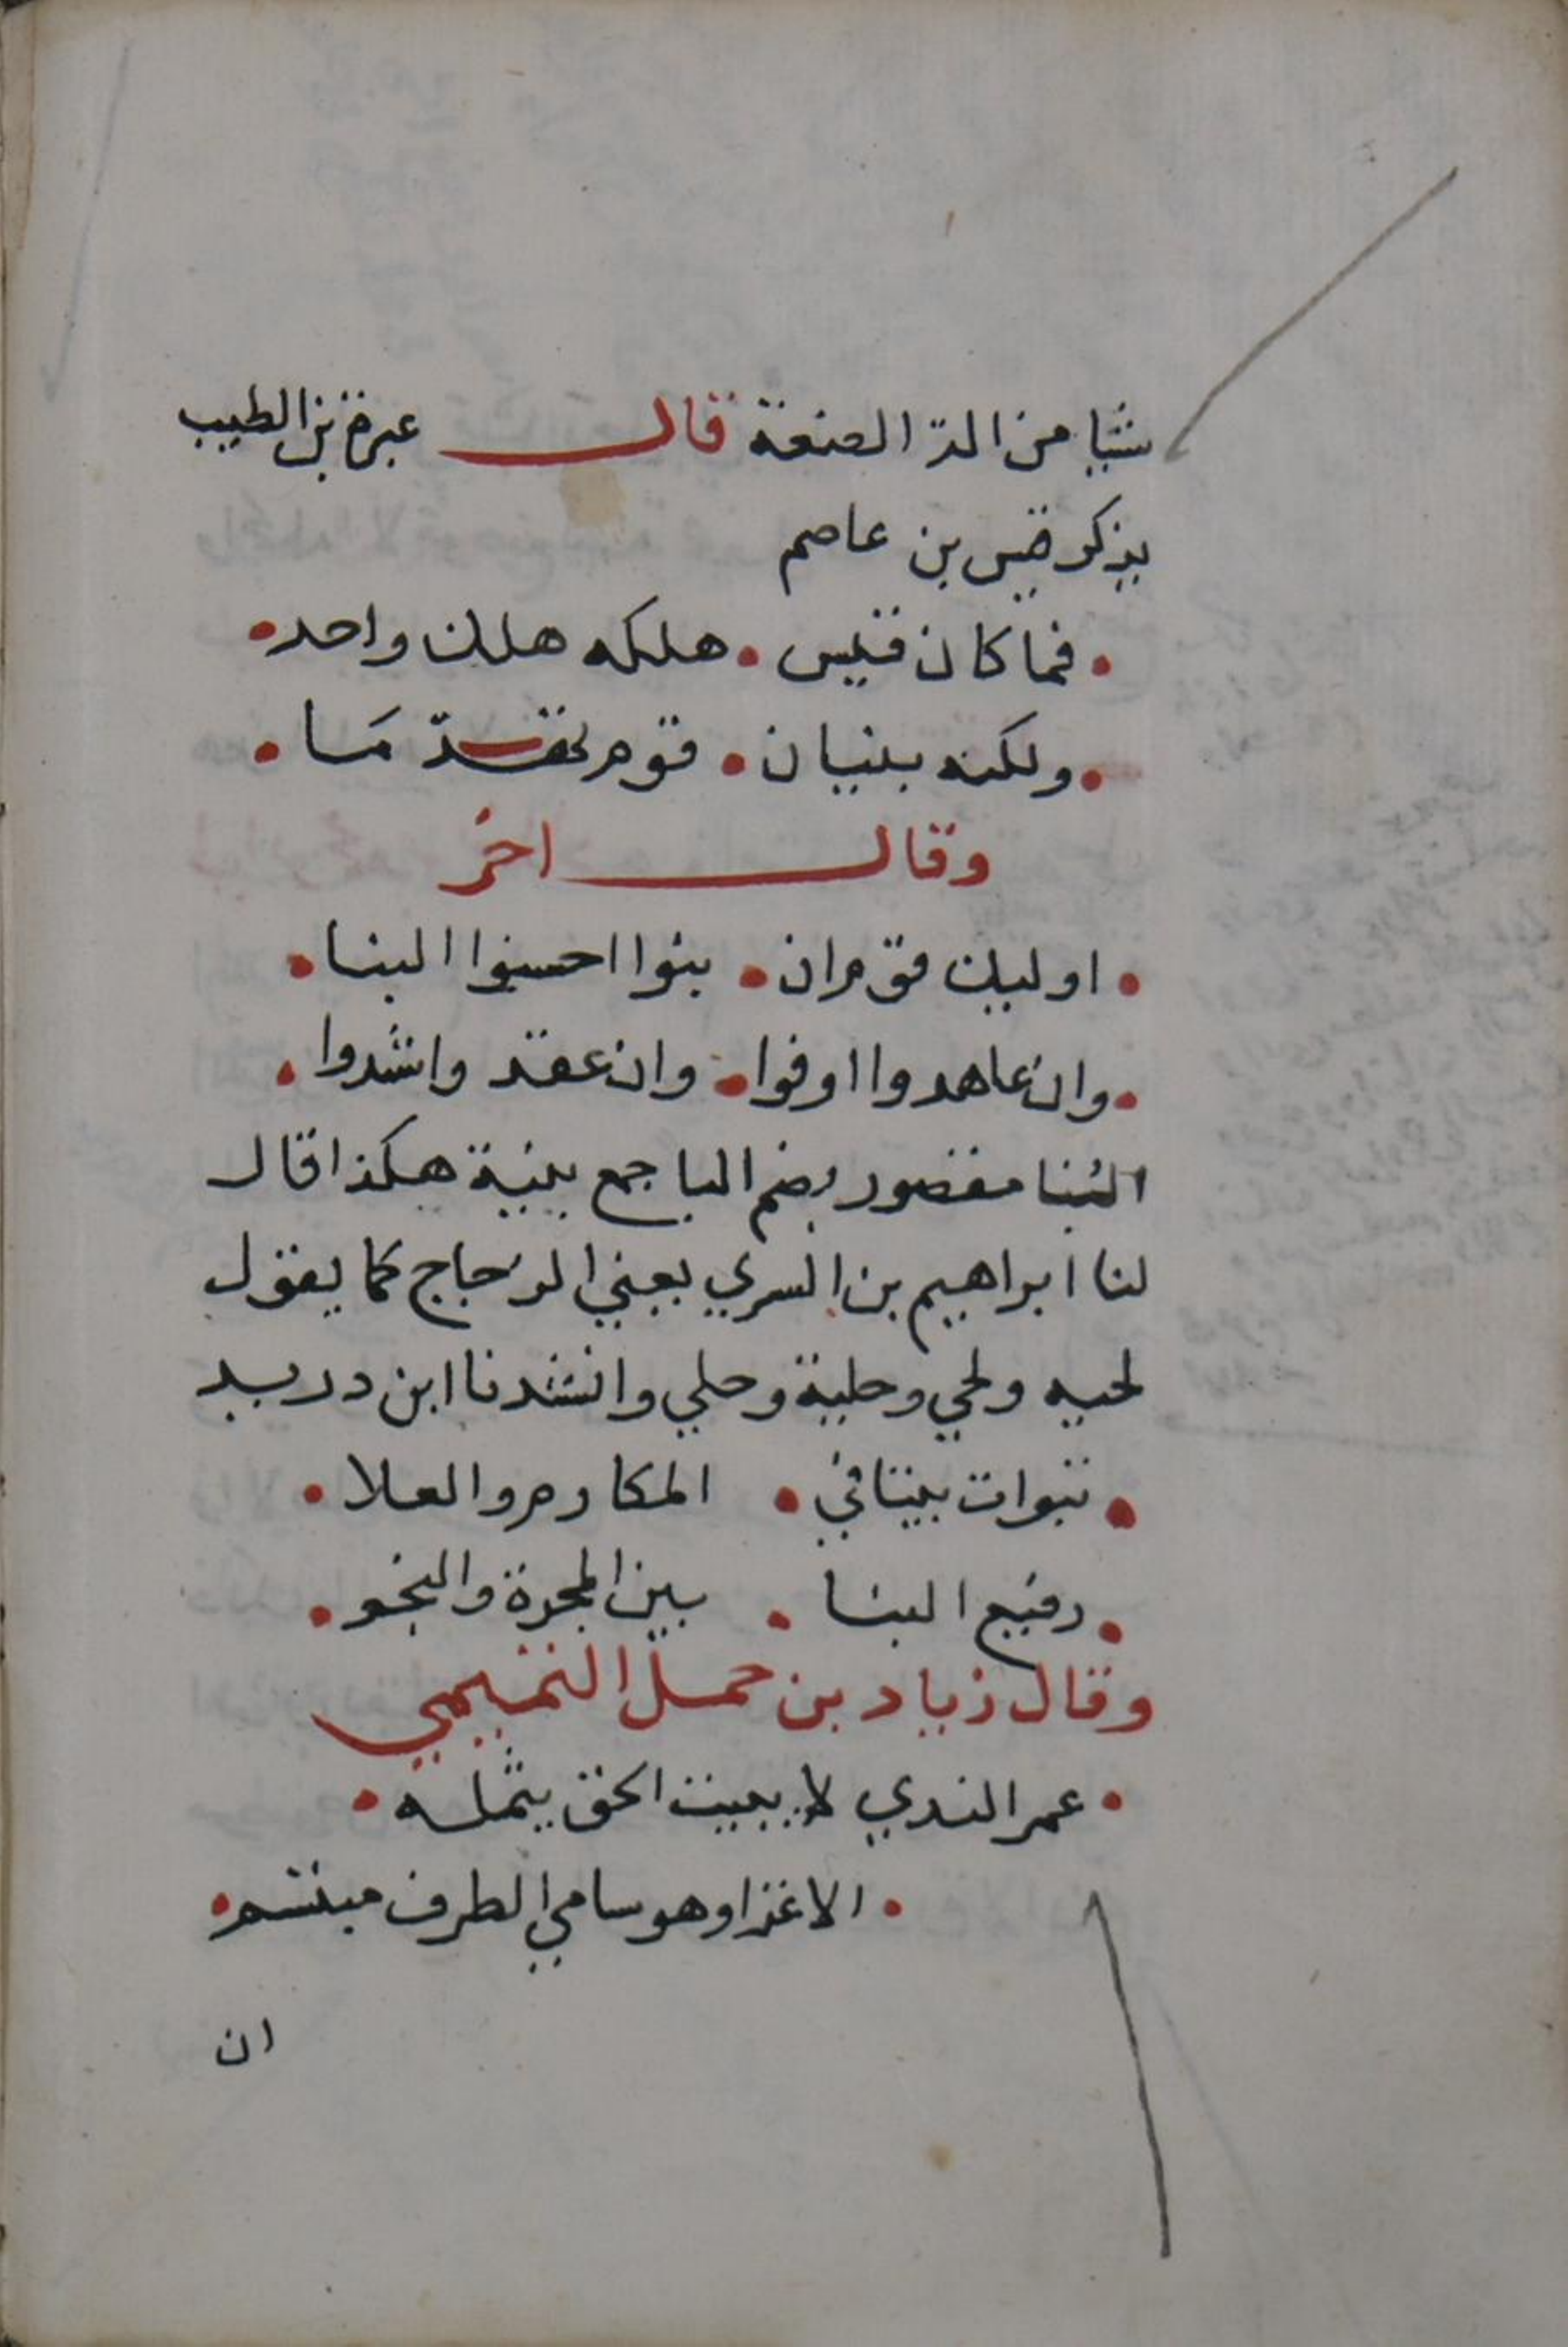 شيا من الة الصنعة قال عبرة بن الطبيب
يذكر قيس بن عاصم
فما كان قيس • هلكه هلك واحد •
ولكنه بنيان • قوم تهدّ مَا •
وقال اخر
• اوليك قوم ان • بنوا احسنوا البنا •
• وان عاهدوا اوفوا • وان عقد واشدوا •
البُنا مقصور بضم البا جمع بنية هكذا قال
لنا ابراهيم بن السري يعني الزجاج كما يقول
لحيه ولحي وحلية وحلي وانشدنا ابن دريد
• تبوات بيتا في • المكارم والعلا •
• رفيع البنا • بين المجرة والنجو •
وقال زياد بن حمل التميمي
• عمر الندي لا يبيت الحق يثمله •
• الا غدا وهو سامي الطرف مبتسم •
ان